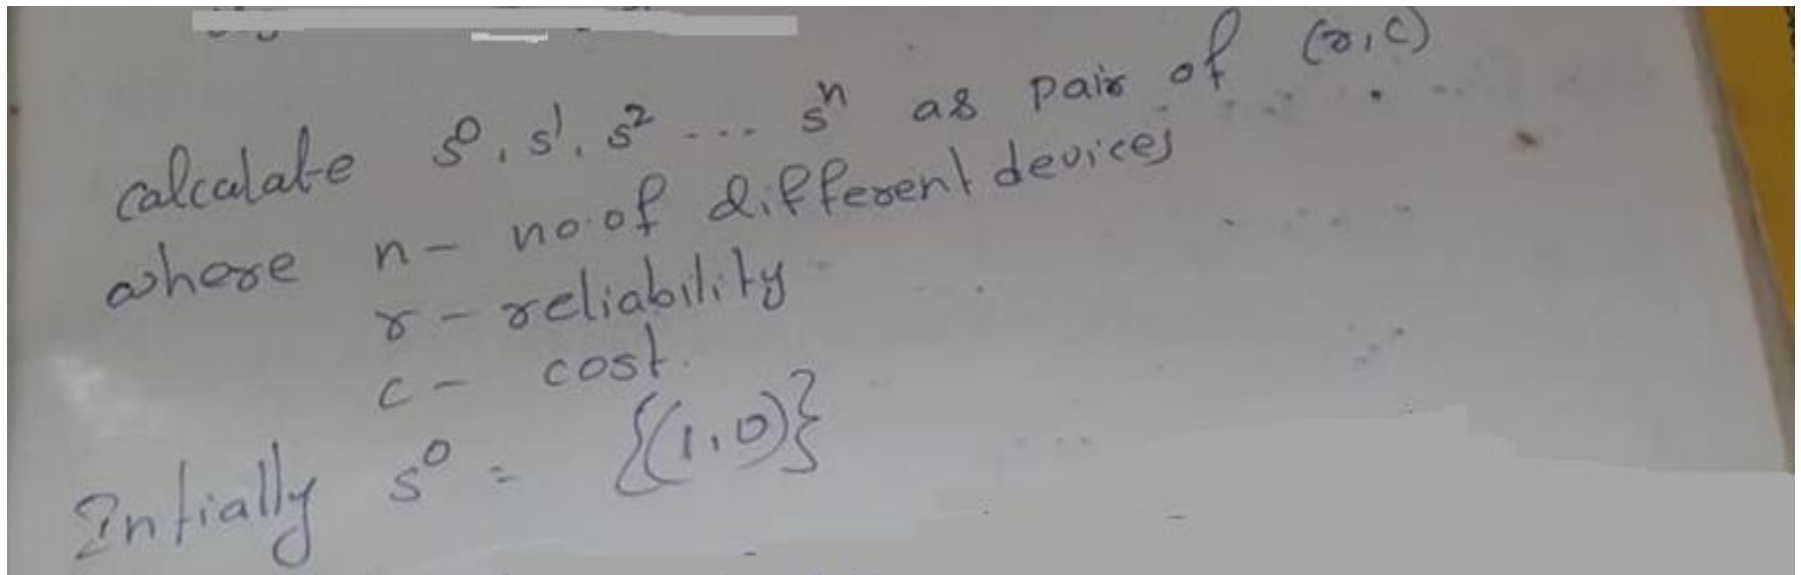 calculate s⁰, s¹, s² ... sⁿ as pair of (r,c)
where n - no.of different devices
r - reliability
c - cost.
Intially s⁰ = {(1,0)}